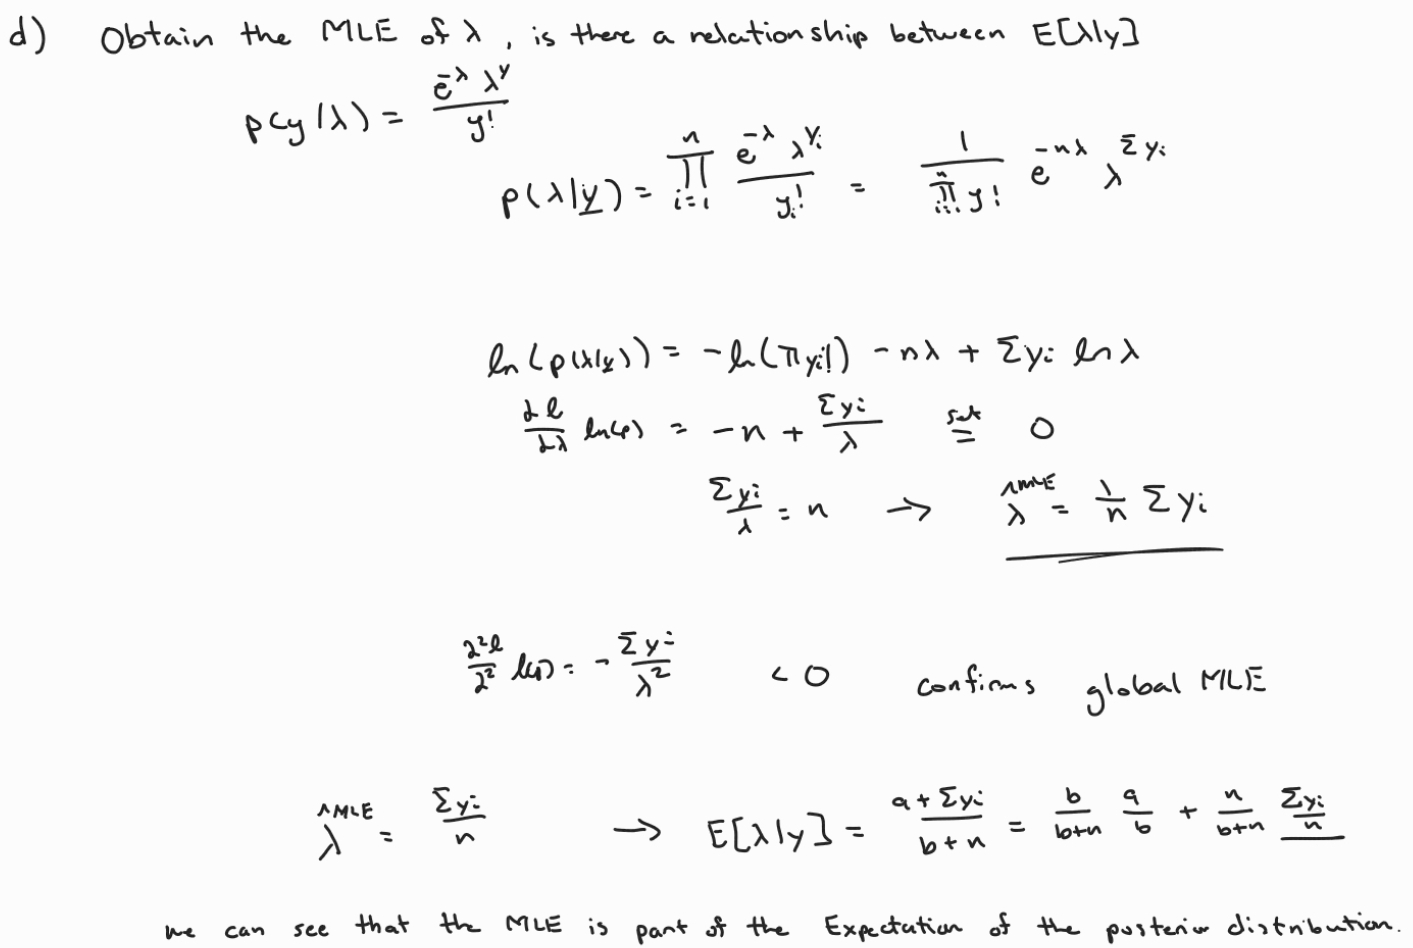 d) Obtain the MLE of λ, is there a relationship between E[λ|y]
p(y|λ) = e^{-λ} λ^y / y!
p(λ|y) = ∏_{i=1}^{n} e^{-λ} λ^{y_i} / y_i! = 1 / ∏_{i=1}^{n} y! e^{-nλ} λ^{Σy_i}
ln(p(λ|y)) = -ln(πy_i!) - nλ + Σy_i lnλ
∂l/∂λ ln(p) = -n + Σy_i/λ set= 0
Σy_i/λ = n → λ̂^{MLE} = 1/n Σy_i
∂²l/∂² l(p) = -Σy_i/λ² < 0 confirms global MLE
λ̂^{MLE} = Σy_i/n → E[λ|y] = (a + Σy_i)/(b + n) = b/(b+n) a/b + n/(b+n) Σy_i/n
we can see that the MLE is part of the Expectation of the posterior distribution.